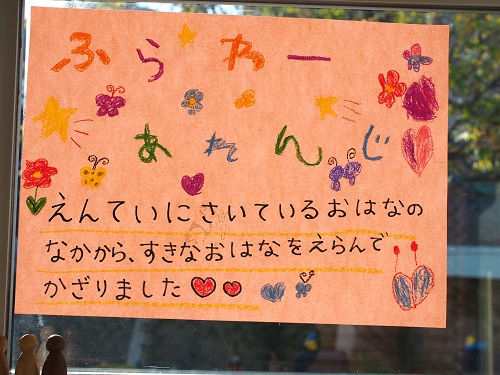 ふらわー
あれんじ
えんていにさいているおはなの
なかから、すきなおはなをえらんで
かざりました